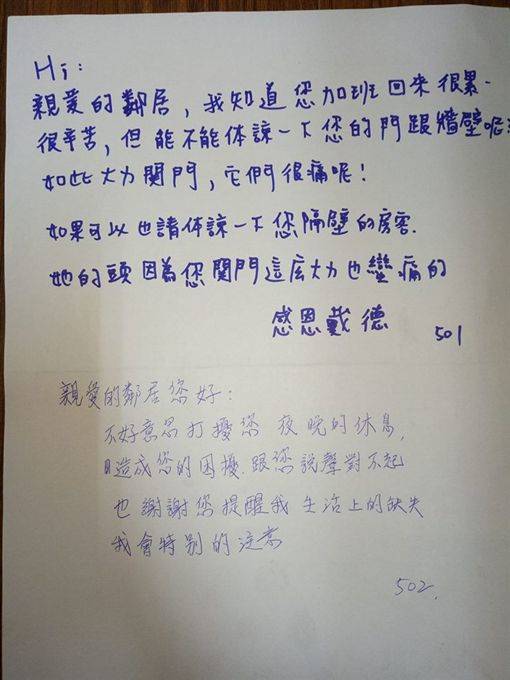 Hi:
親愛的鄰居，我知道您加班回來很累、
很辛苦，但能不能体諒一下您的門跟牆壁呢?
如此大力関門，它們很痛呢!
如果可以也請体諒一下您隔壁的房客.
她的頭因為您関門這麼大力也蠻痛的
感恩戴德 501
親愛的鄰居您好:
不好意思打擾您 夜晚的休息,
造成您的困擾.跟您說聲對不起
也謝謝您提醒我生活上的缺失
我會特別的注意
502.